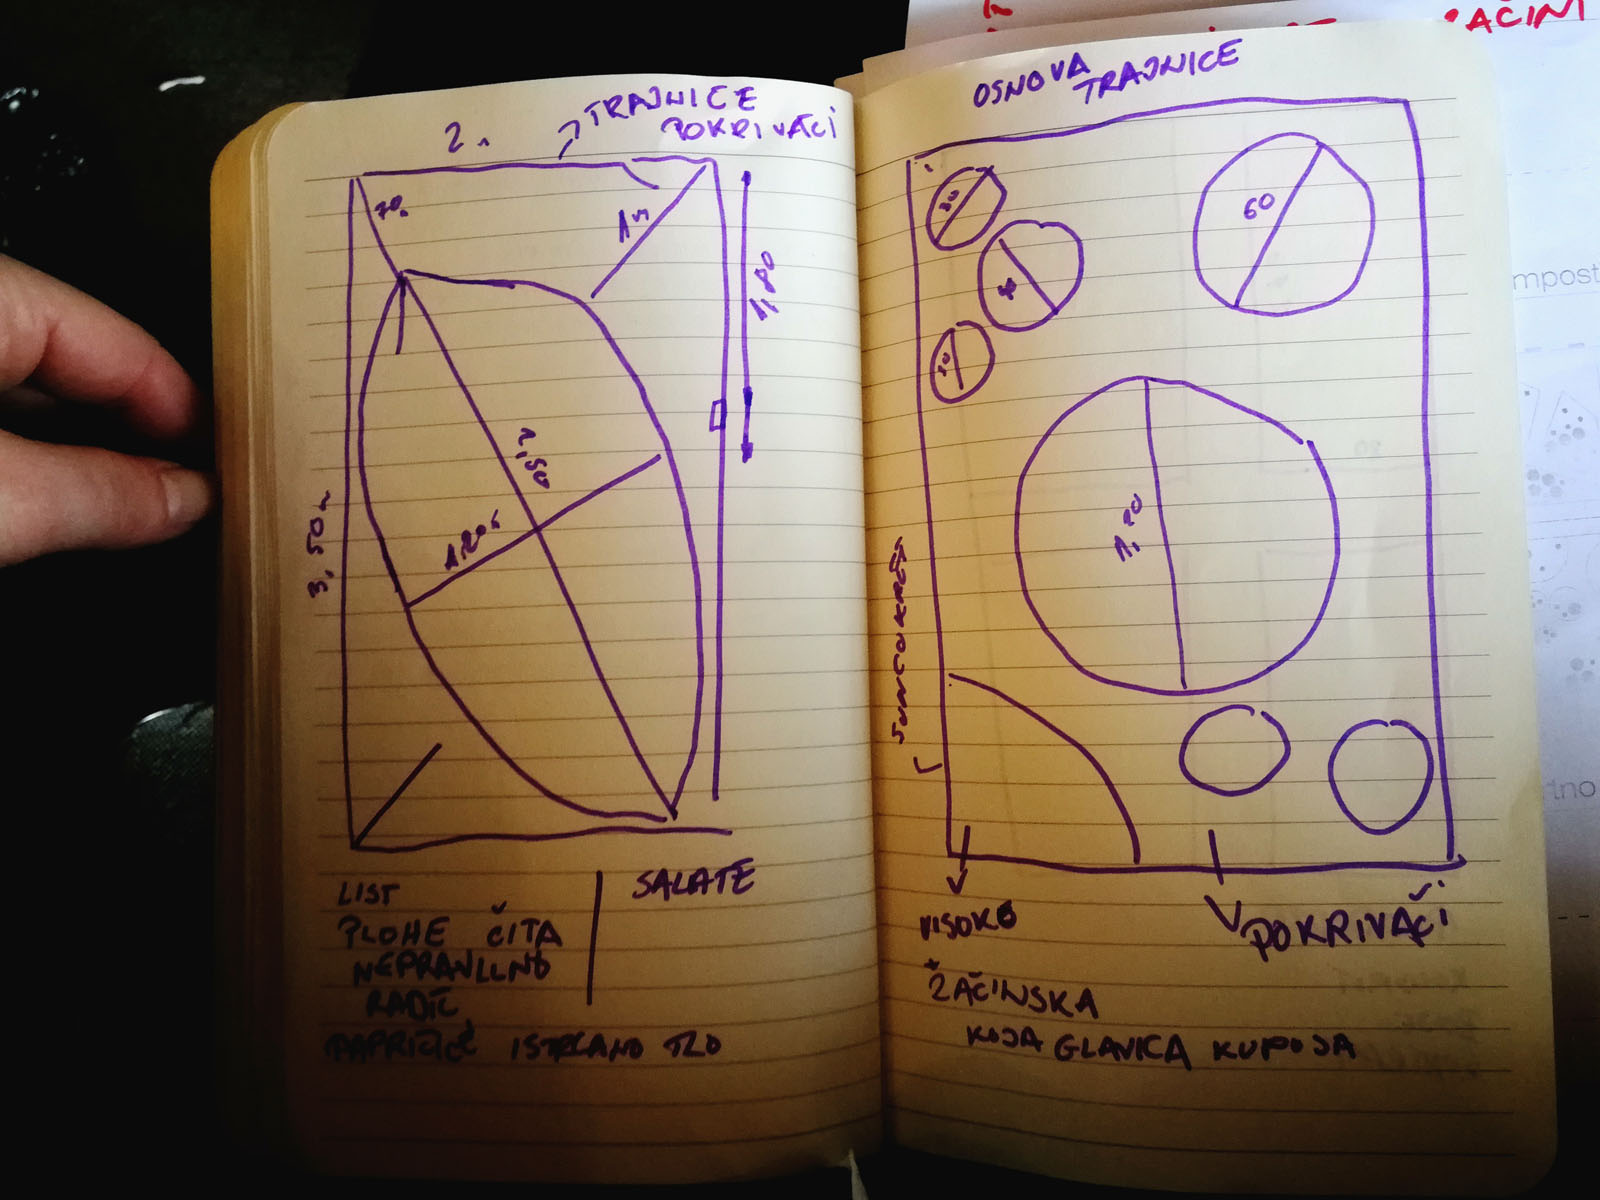 2.
TRAJNICE
POKRIVAČI
70.
1m
1,80
2,50
1,20m
3,50m
LIST
PLOHE ČITA
NEPRAVILNO
RADIČ
SALATE
PAPRIČICE ISTRCANO TLO
OSNOVA
TRAJNICE
30
60
1,20
SUNCOKRET
VISOKO
POKRIVAČI
ZAČINSKA
KOJA GLAVICA KUPOJA
AČINI
mpost